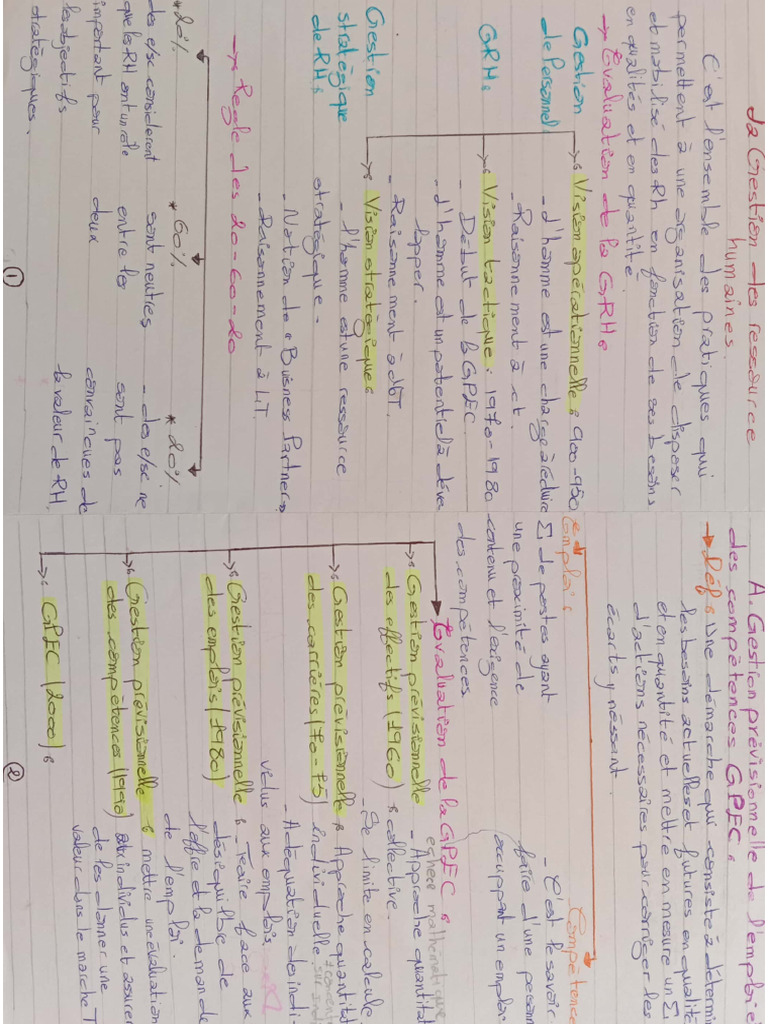 La Gestion des ressource
humaines.
C'est l'ensemble des pratiques qui
permettent à une organisation de disposer
et mobilisé des Rh en fonction de ses besoins
en qualités et en quantité.
→ Evaluation de la GRH :
Gestion
de Personnel
→ Vision opérationnelle : 900-950
- L'homme est une charge à réduire
- Raisonnement à ct.
GRH :
→ Vision tactique : 1970-1980
- Début de la GPEC.
- L'homme est un potentiel à déve
lopper.
- Raisonnement à MT.
Gestion
stratégique
de RH :
→ Vision stratégique :
- l'homme est une ressource
stratégique.
- Notion de "Buisness Partner"
- Raisonnement à LT.
→ Regle des 20-60-20
* 20%
des e/se considerent
que les RH ont un rôle
important pour
les objectifs
stratégiques.
* 60%
sont neutres
entre les
deux
* 20%
- des e/se ne
sont pas
convaincues de
la valeur de RH.
1
A. Gestion prévisionnelle de l'emploi e
des compétences GPEC :
→ Déf : Une démarche qui consiste à détermi
les besoins actuelles et futures en qualité
et en quantité et mettre en mesure un Σ
d'actions nécessaires pour corriger les
écarts y néssant.
Emploi :
Σ de postes ayant
une proximité de
contenu et l'exigence
des compétences
Compétence
- C'est le savoir
faire d'une personn
occupant un emploi
→ Evaluation de la GPEC :
→ Gestion prévisionnelle
des effectifs (1960) :
- Approche quantitat
collective.
Se limite en calcule
→ Gestion prévisionnelle
des carrières (70-75)
: Approche quantitat
individuelle
- Adéquation de indi-
vidus aux emplois.
→ Gestion prévisionnelle
des emplois (1980)
: Faire face aux
désiquilibre de
l'offre et la demande
de l'emploi.
→ Gestion prévisionnelle
des compétences (1990)
: mettre une évaluation
aux individus et assurer
de les donner une
valeur dans le marché T
→ GPEC (2000) :
2